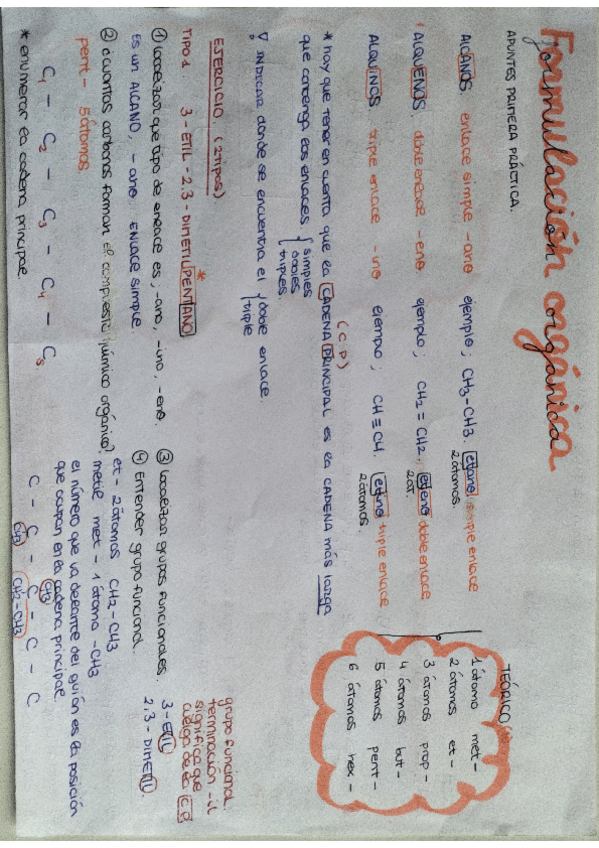 Formulación orgánica
APUNTES PRIMERA PRÁCTICA.
ALCANOS, enlace simple -ano ejemplo; CH3-CH3. etano simple enlace
2 átomos.
ALQUENOS, doble enlace -eno ejemplo; CH2=CH2, eteno doble enlace
2 at.
ALQUINOS, triple enlace -ino ejemplo; CH≡CH. etino triple enlace
2 átomos.
TEÓRICO
1 átomo met-
2 átomos et-
3 átomos prop-
4 átomos but-
5 átomos pent-
6 átomos hex-
(C.P)
* hay que tener en cuenta que la CADENA PRINCIPAL es la CADENA más larga
que contenga los enlaces { simples
dobles
triples.
▽ INDICAR donde se encuentra el { doble enlace.
triple
EJERCICIO. (2 tipos)
TIPO 1 3-ETIL-2,3-DIMETILPENTANO *
① localizar que tipo de enlace es, -ano, -ino, -eno.
ES un ALCANO, -ano ENLACE simple.
② ¿cuantos carbonos forman el compuesto químico orgánico?
pent- 5 átomos.
C1 - C2 - C3 - C4 - C5
* enumerar la cadena principal
③ localizar grupos funcionales.
3-ETIL
2,3-DIMETIL.
④ Entender grupo funcional.
grupo funcional.
terminación -il
significa que
cuelga de la C.P
et- 2 átomos CH2-CH3
metil met- 1 átomo -CH3
el número que va delante del guión es la posición
que ocupan en la cadena principal.
CH3
C - C - C - C - C
CH3 CH2-CH3